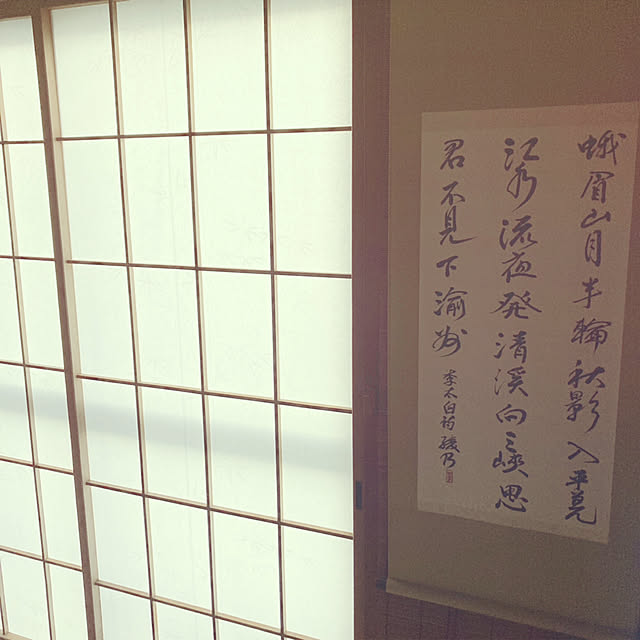 蛾眉山月半輪秋影入平羌
江水流夜発清溪向三峽思
君不見下渝州 李太白詩